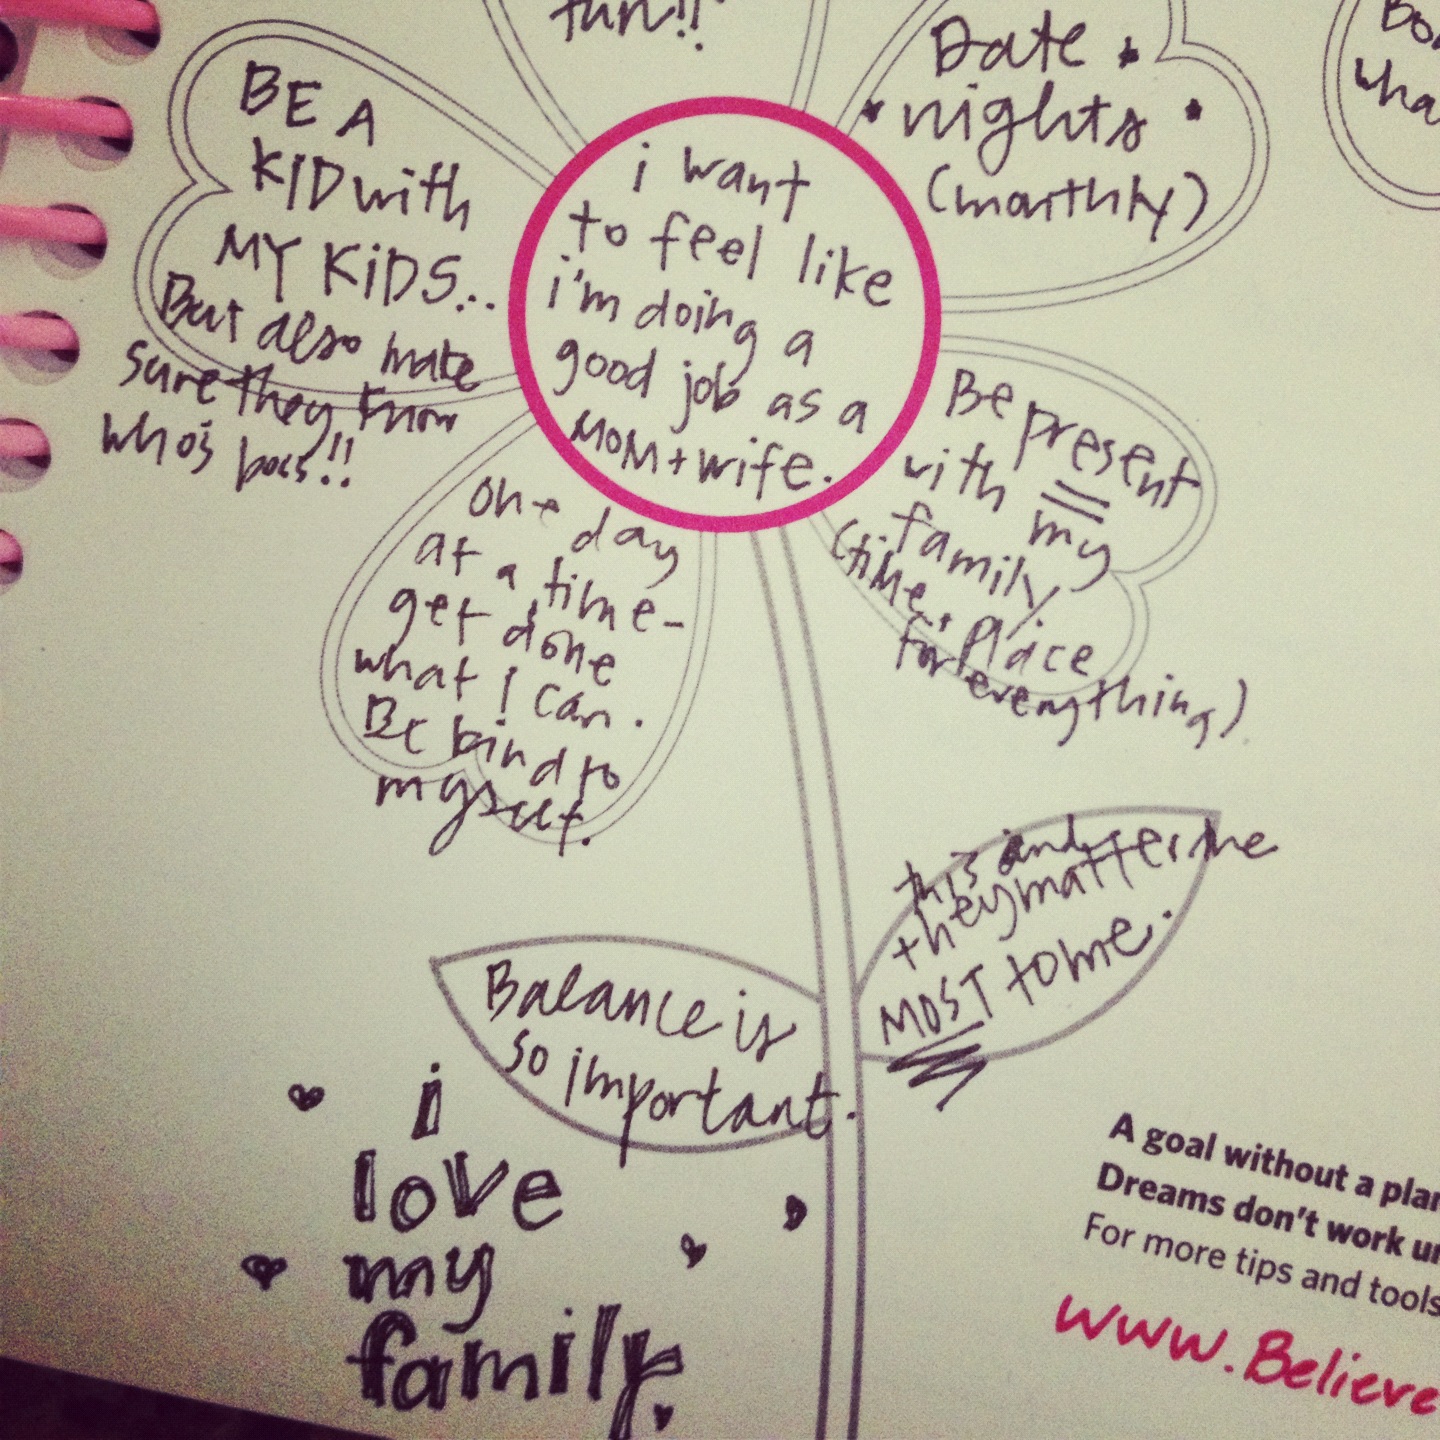 fun!!
Date
nights
(monthly)
BE A
KID with
MY KIDS...
But also make
sure they know
who's boss!!
i want
to feel like
i'm doing a
good job as a
MOM + wife.
Be present
with my
family
(time + place
for everything)
one day
at a time-
get done
what I can.
Be kind to
myself.
this and
they matter the
MOST to me.
Balance is
so important.
i
love
my
family
A goal without a plan
Dreams don't work un
For more tips and tools
www.Believe